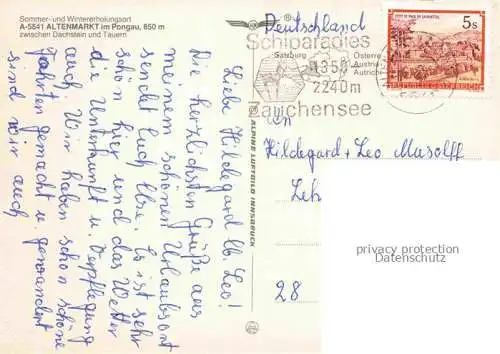 Sommer- und Wintererholungsort
A-5541 ALTENMARKT im Pongau, 850 m
zwischen Dachstein und Tauern
Liebe Hildegard lb. Leo!
Die herzlichsten Grüße aus
meinem schönen Urlaubsort
sendet Euch Ilse. Es ist sehr
schön hier und das Wetter
d. Unterkunft u. Verpflegung
auch. Wir haben schon schöne
Fahrten gemacht u. gewandert
sind wir auch
ALPINE LUFTBILD INNSBRUCK
Deutschland
Schiparadies
Salzburg
1350
2240m
Zauchensee
5s
REPUBLIK ÖSTERREICH
An
Hildegard + Leo Masolff
28
privacy protection
Datenschutz